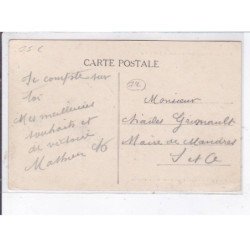 35 €
CARTE POSTALE
Je compte sur
toi
Mes meilleures
souhaits et
de victoire
Mathieu
Monsieur
Charles Grimault
Maire de Mandres
S et O